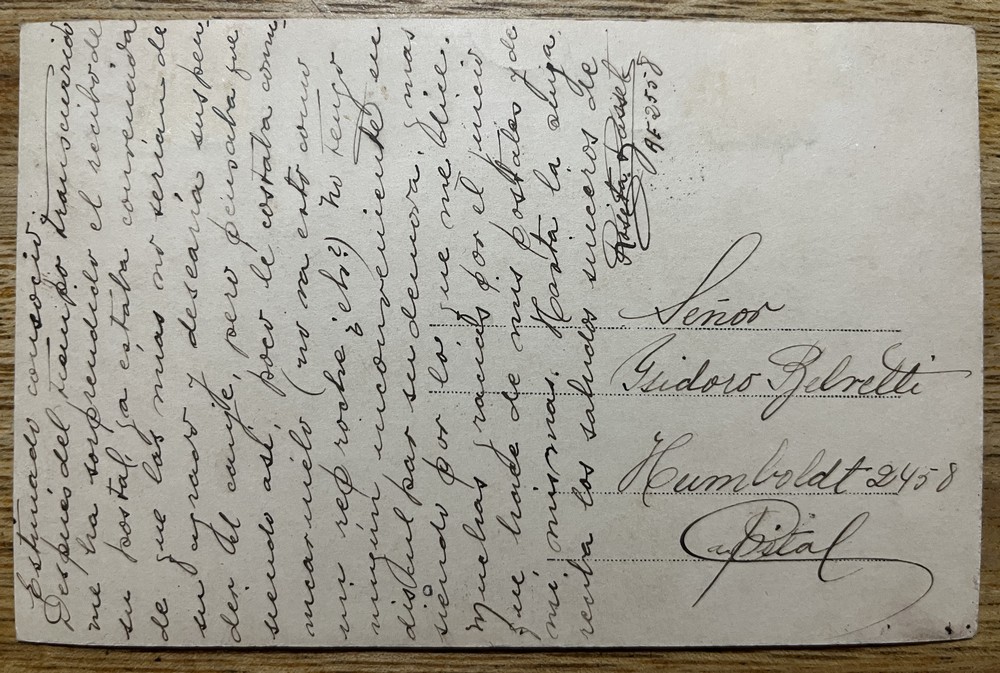 Estimado consocio:
Despues del tiempo transcurrido
me ha sorprendido el recibo de
su postal, ya estaba convencida
de que las mias no serían de
su agrado y desearía suspen-
der el canje, pero pensaba que
siendo así, poco le costaba comu-
nicarmelo (no va esto como
un reproche ¿eh?) No tengo
ningún inconveniente en
disculpar su demora, y mas
siendo por los que me dice.
Muchas gracias por el juicio
que hace de mis postales y de
mi misma. Hasta la suya
reciba los saludos sinceros de
Rosita Rossel
AF 2558
Señor
Isidoro Belvetti
Humboldt 2458
Capital